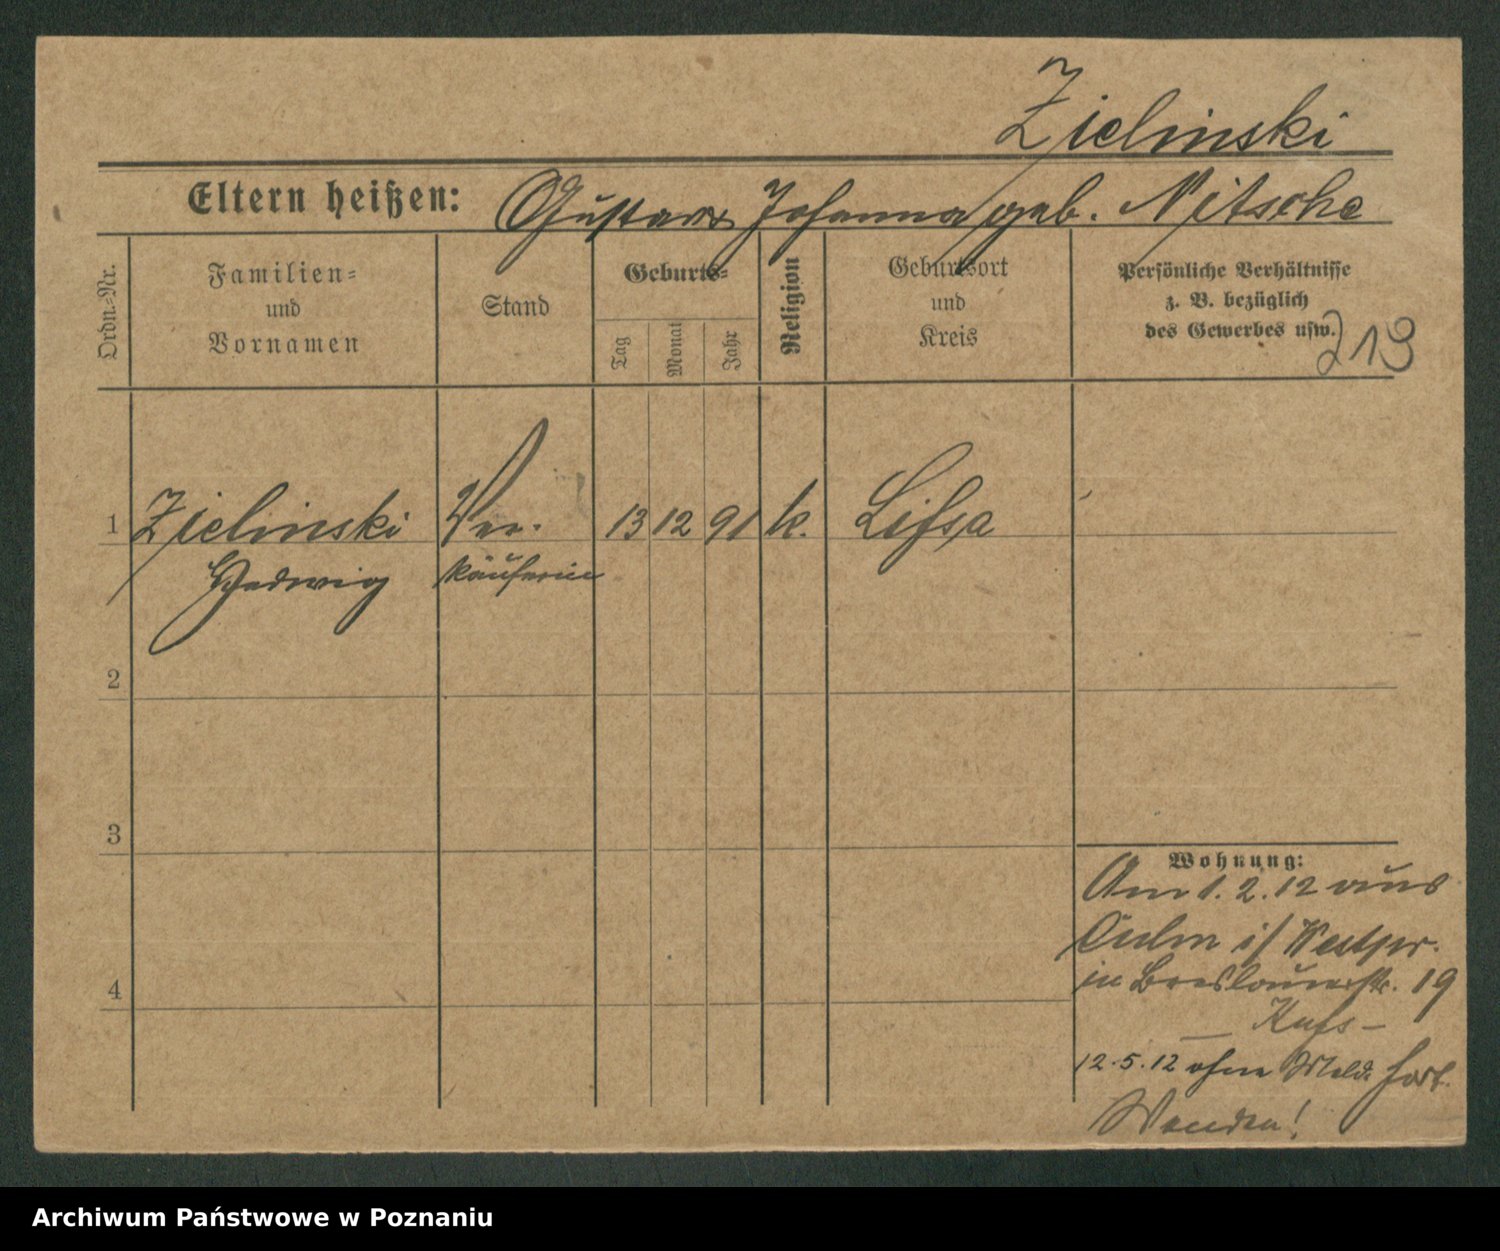 Zielinski
Eltern heißen: Gustav Johanna geb. Nitsche
Ordn.-Nr.
Familien-
und
Vornamen
Stand
Geburts-
Tag
Monat
Jahr
Religion
Geburtsort
und
Kreis
Persönliche Verhältnisse
z. B. bezüglich
des Gewerbes usw.
213
1 Zielinski Ver- 13 12 91 k. Lissa
Hedwig käuferin
2
3
4
Wohnung:
Am 1.2.12 aus
Culm i/ Westpr.
in Breslauerstr. 19
12.5.12 ohne Meld. fort.
Wenden!
Archiwum Państwowe w Poznaniu